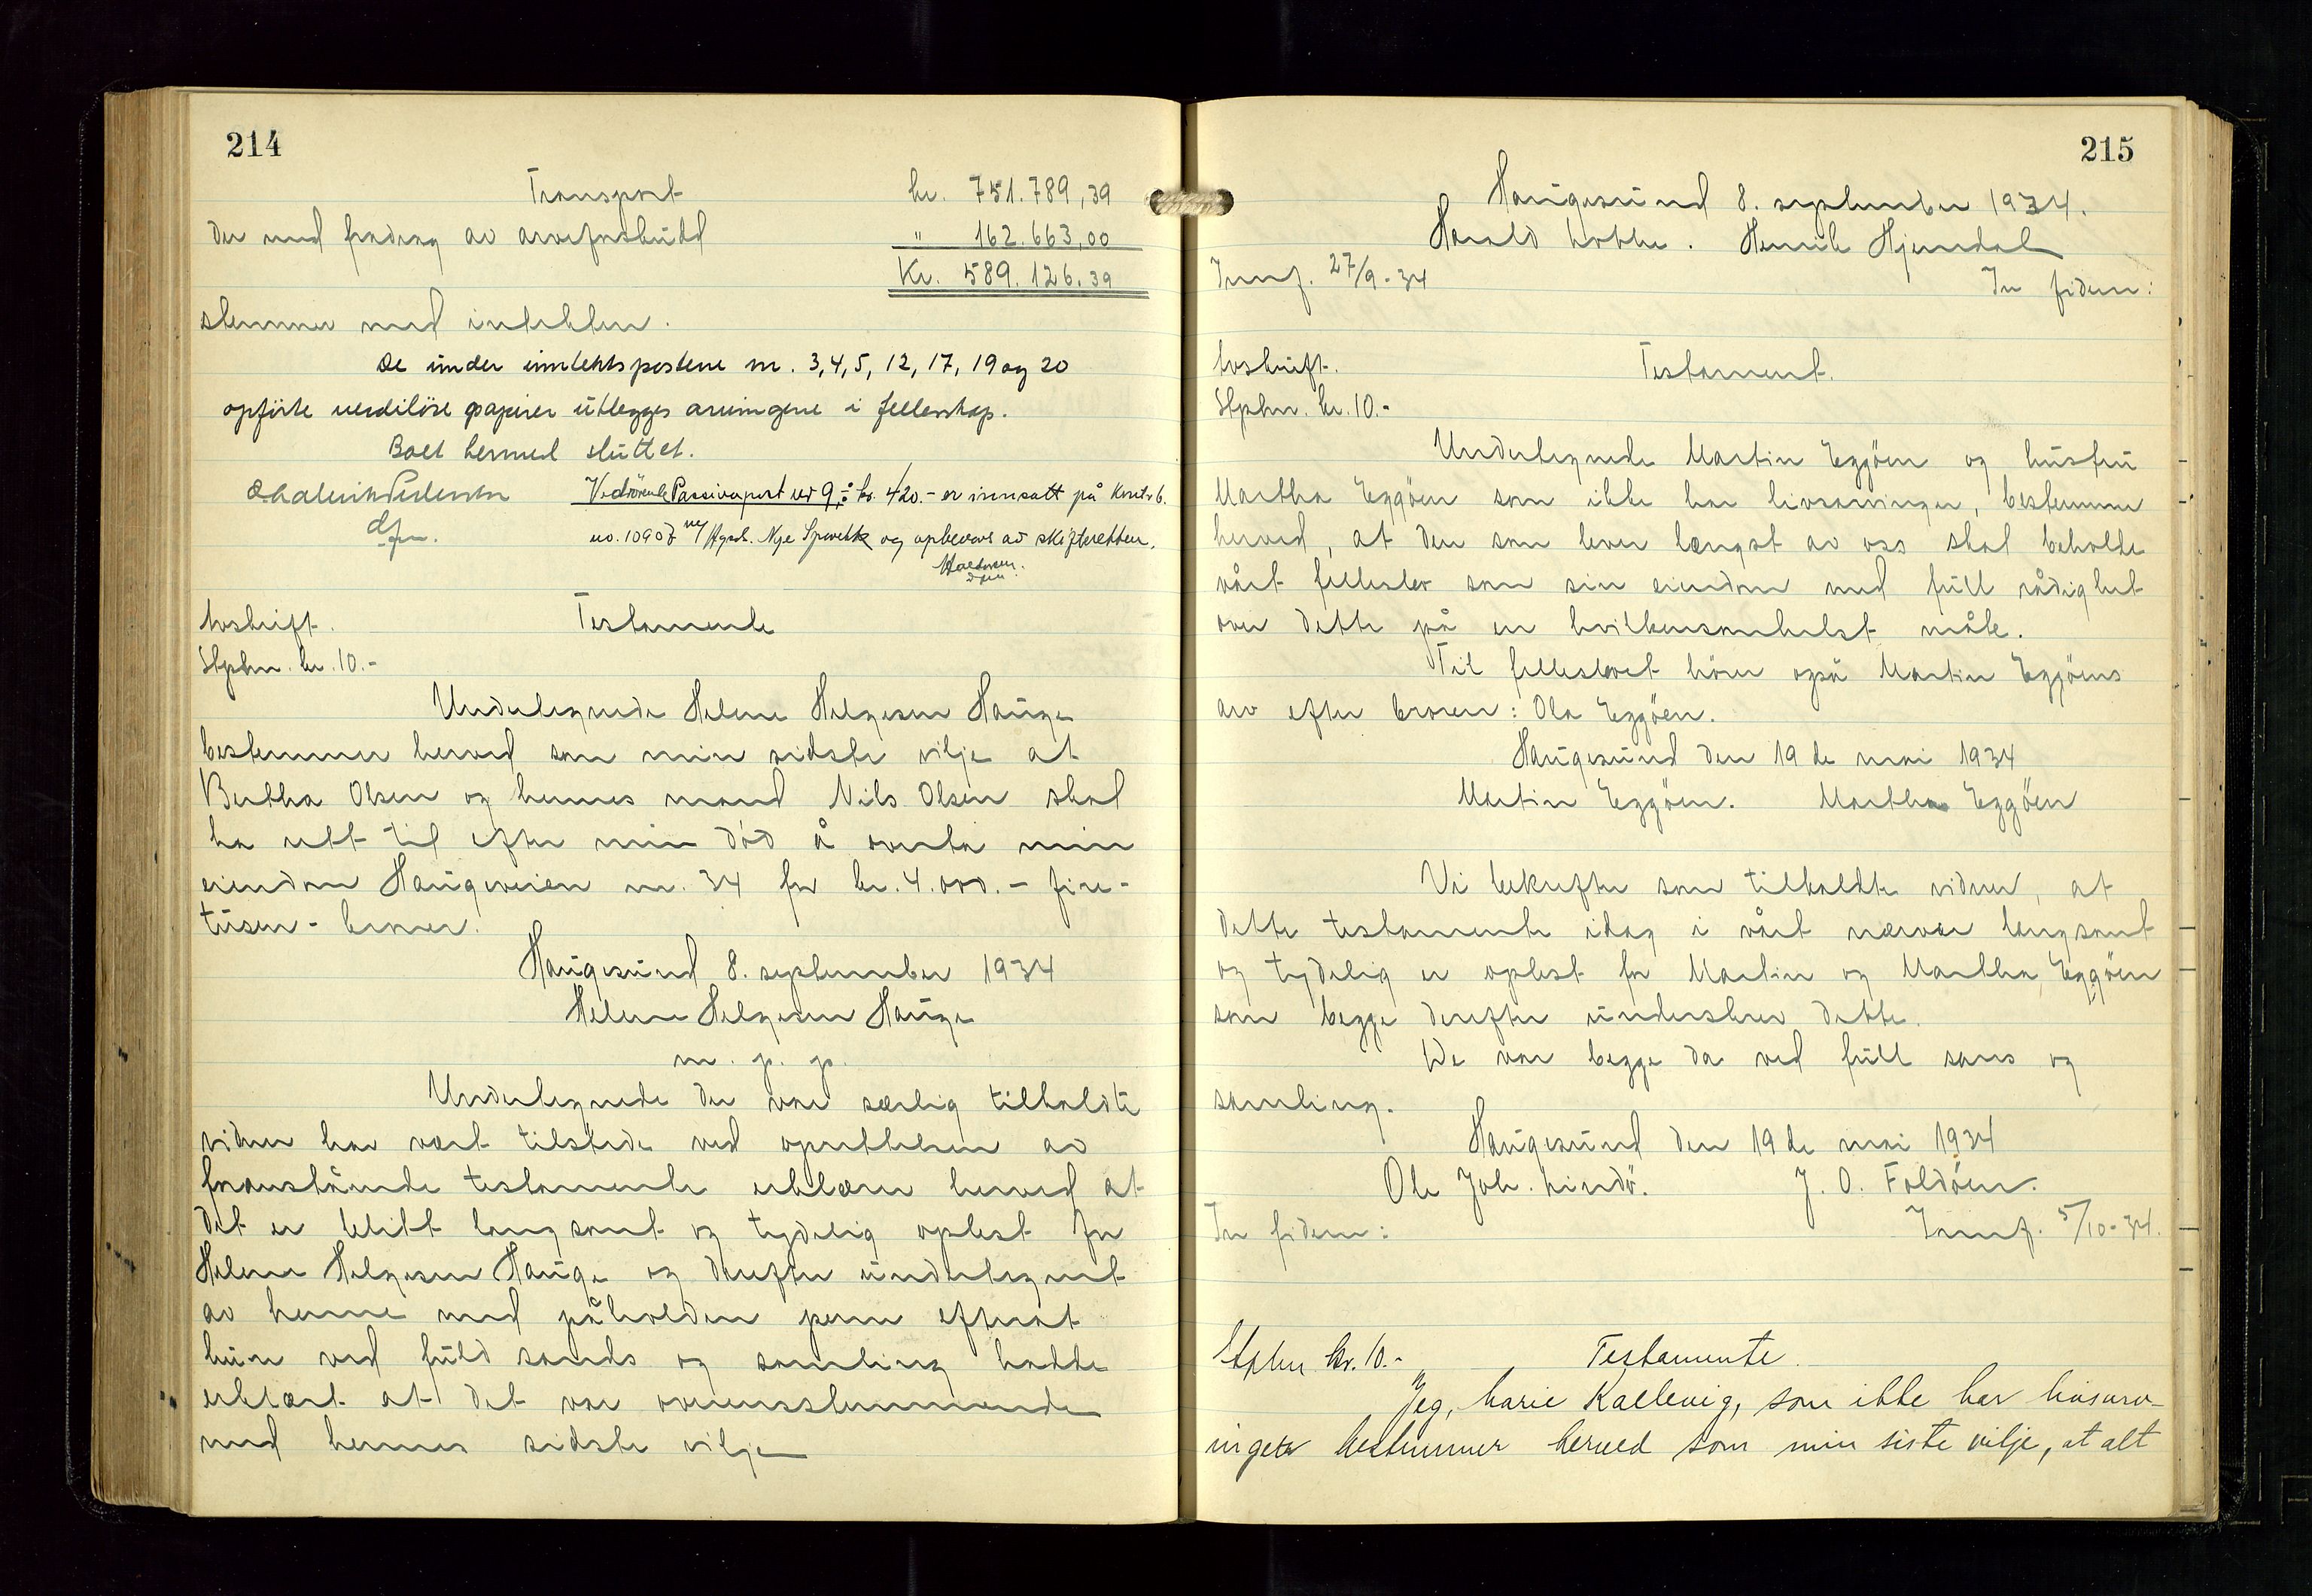 214
Transport kr. 751.789,39
der med fradrag av arveforskudd " 162.663,00
Kr. 589.126.39
stemmer med inntekten.
De under inntektspostene nr. 3, 4, 5, 12, 17, 19 og 20
opførte verdiløse papirer utlegges arvingene i fellesskap.
Boet hermed sluttet.
Vedrörende Passivapost ved 9, ÷ kr. 420.- er innsatt på Kontrb.
no. 10907 v/ Hgsds. Nye Sparebk og opbevares av skifteretten.
dfm.
Avskrift. Testamente
Stpkm. kr. 10.-
Undertegnede Helene Helgesen Hauge
bestemmer herved som min sidste vilje at
Bertha Olsen og hennes mand Nils Olsen skal
ha rett til efter min död å overta min
eiendom Haugeveien nr. 34 for kr. 4.000.- fire-
tusen - kroner.
Haugesund 8. september 1934
Helene Helgesen Hauge
m. p. p.
Undertegnede der som særlig tilkaldte
vidner har vært tilstede ved oprettelsen av
foranstående testamente erklærer herved at
det er blitt langsomt og tydelig oplest for
Helene Helgesen Hauge og derefter undertegnet
av henne med påholden penn efterat
hun ved fuld sands og samling hadde
erklært at det var overensstemmende
med hennes sidste vilje
215
Haugesund 8. september 1934.
Harald Lothe. Henrik Hjemdal
Innf. 27/9-34 In fidem:
Avskrift. Testament.
Stpkm. kr. 10.-
Undertegnede Martin Eggöen og husfru
Martha Eggöen som ikke har livsarvinger, bestemmer
herved, at den som lever længst av oss skal beholde
vårt felleseie som sin eiendom med full rådighet
over dette på en hvilkensomhelst måte.
Til felleseiet hörer også Martin Eggöens
arv efter broren: Ola Eggöen.
Haugesund den 19 de mai 1934
Martin Eggöen. Martha Eggöen
Vi bekrefter som tilkaldte vidner, at
dette testamente idag i vårt nærvær langsomt
og tydelig er oplest for Martin og Martha Eggöen
som begge derefter underskrev dette.
De var begge da ved full sans og
samling.
Haugesund den 19 de mai 1934
Ole Joh. Lindö. J. O. Foldöen.
In fidem: Innf. 5/10-34.
Stpkm kr. 10.- Testamente.
Jeg, Marie Kallevig, som ikke har livsarv-
inger bestemmer herved som min siste vilje, at alt